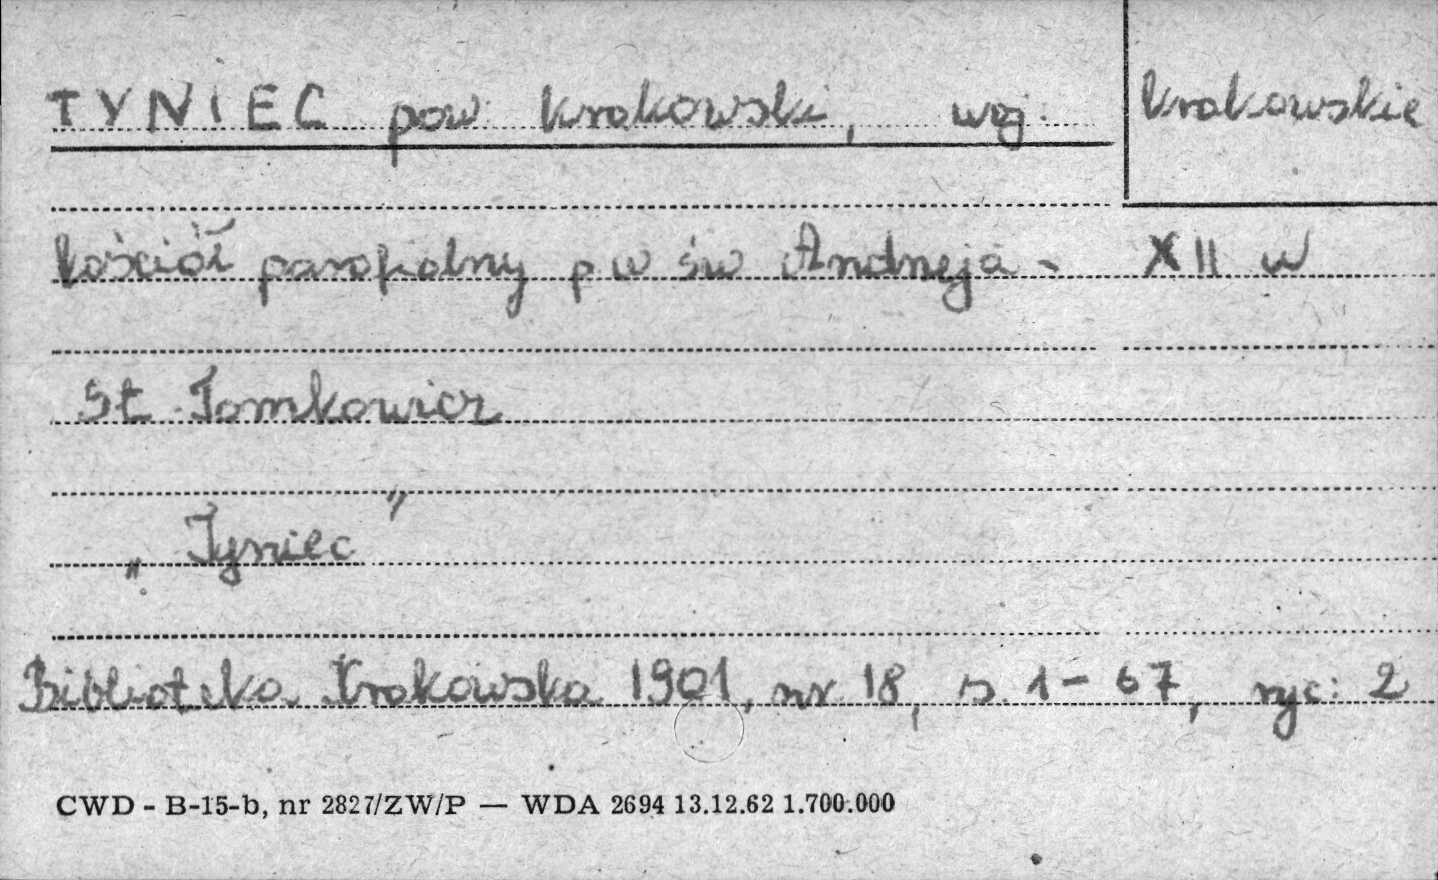 TYNIEC pow krakowski, woj. krakowskie
kościół parafialny p w św Andrzeja - XII w
St. Tomkowicz
„Tyniec"
Biblioteka Krakowska 1901, nr 18, s. 1-67, ryc: 2
CWD - B-15-b, nr 2827/ZW/P — WDA 2694 13.12.62 1.700.000